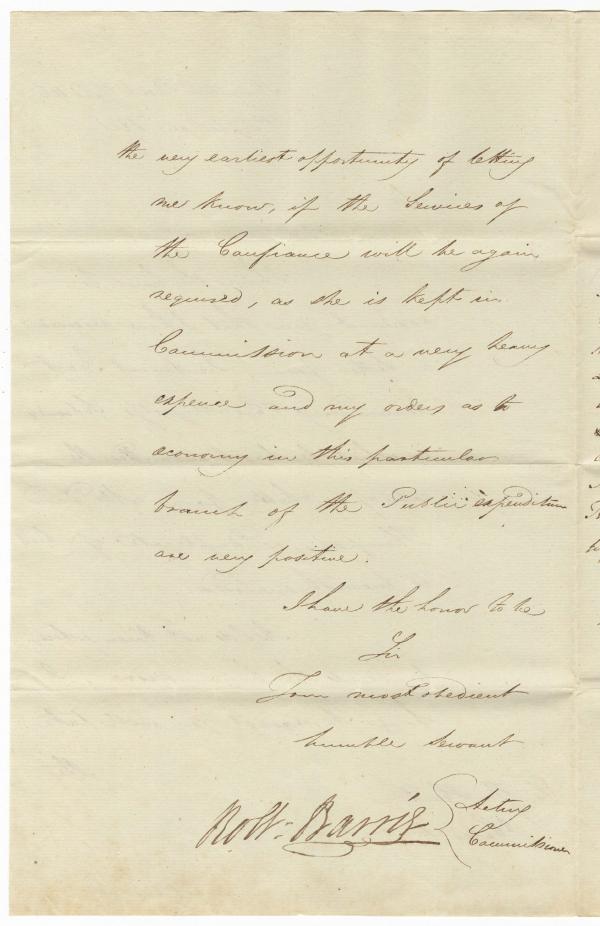 the very earliest opportunity of letting
me know, if the Services of
the Confiance will be again
required, as she is kept in
Commission at a very heavy
expence and my orders as to
economy in this particular
branch of the Public expenditure
are very positive.
I have the honor to be
Sir
Your most obedient
humble Servant
Robt. Barrie Acting
Commissioner